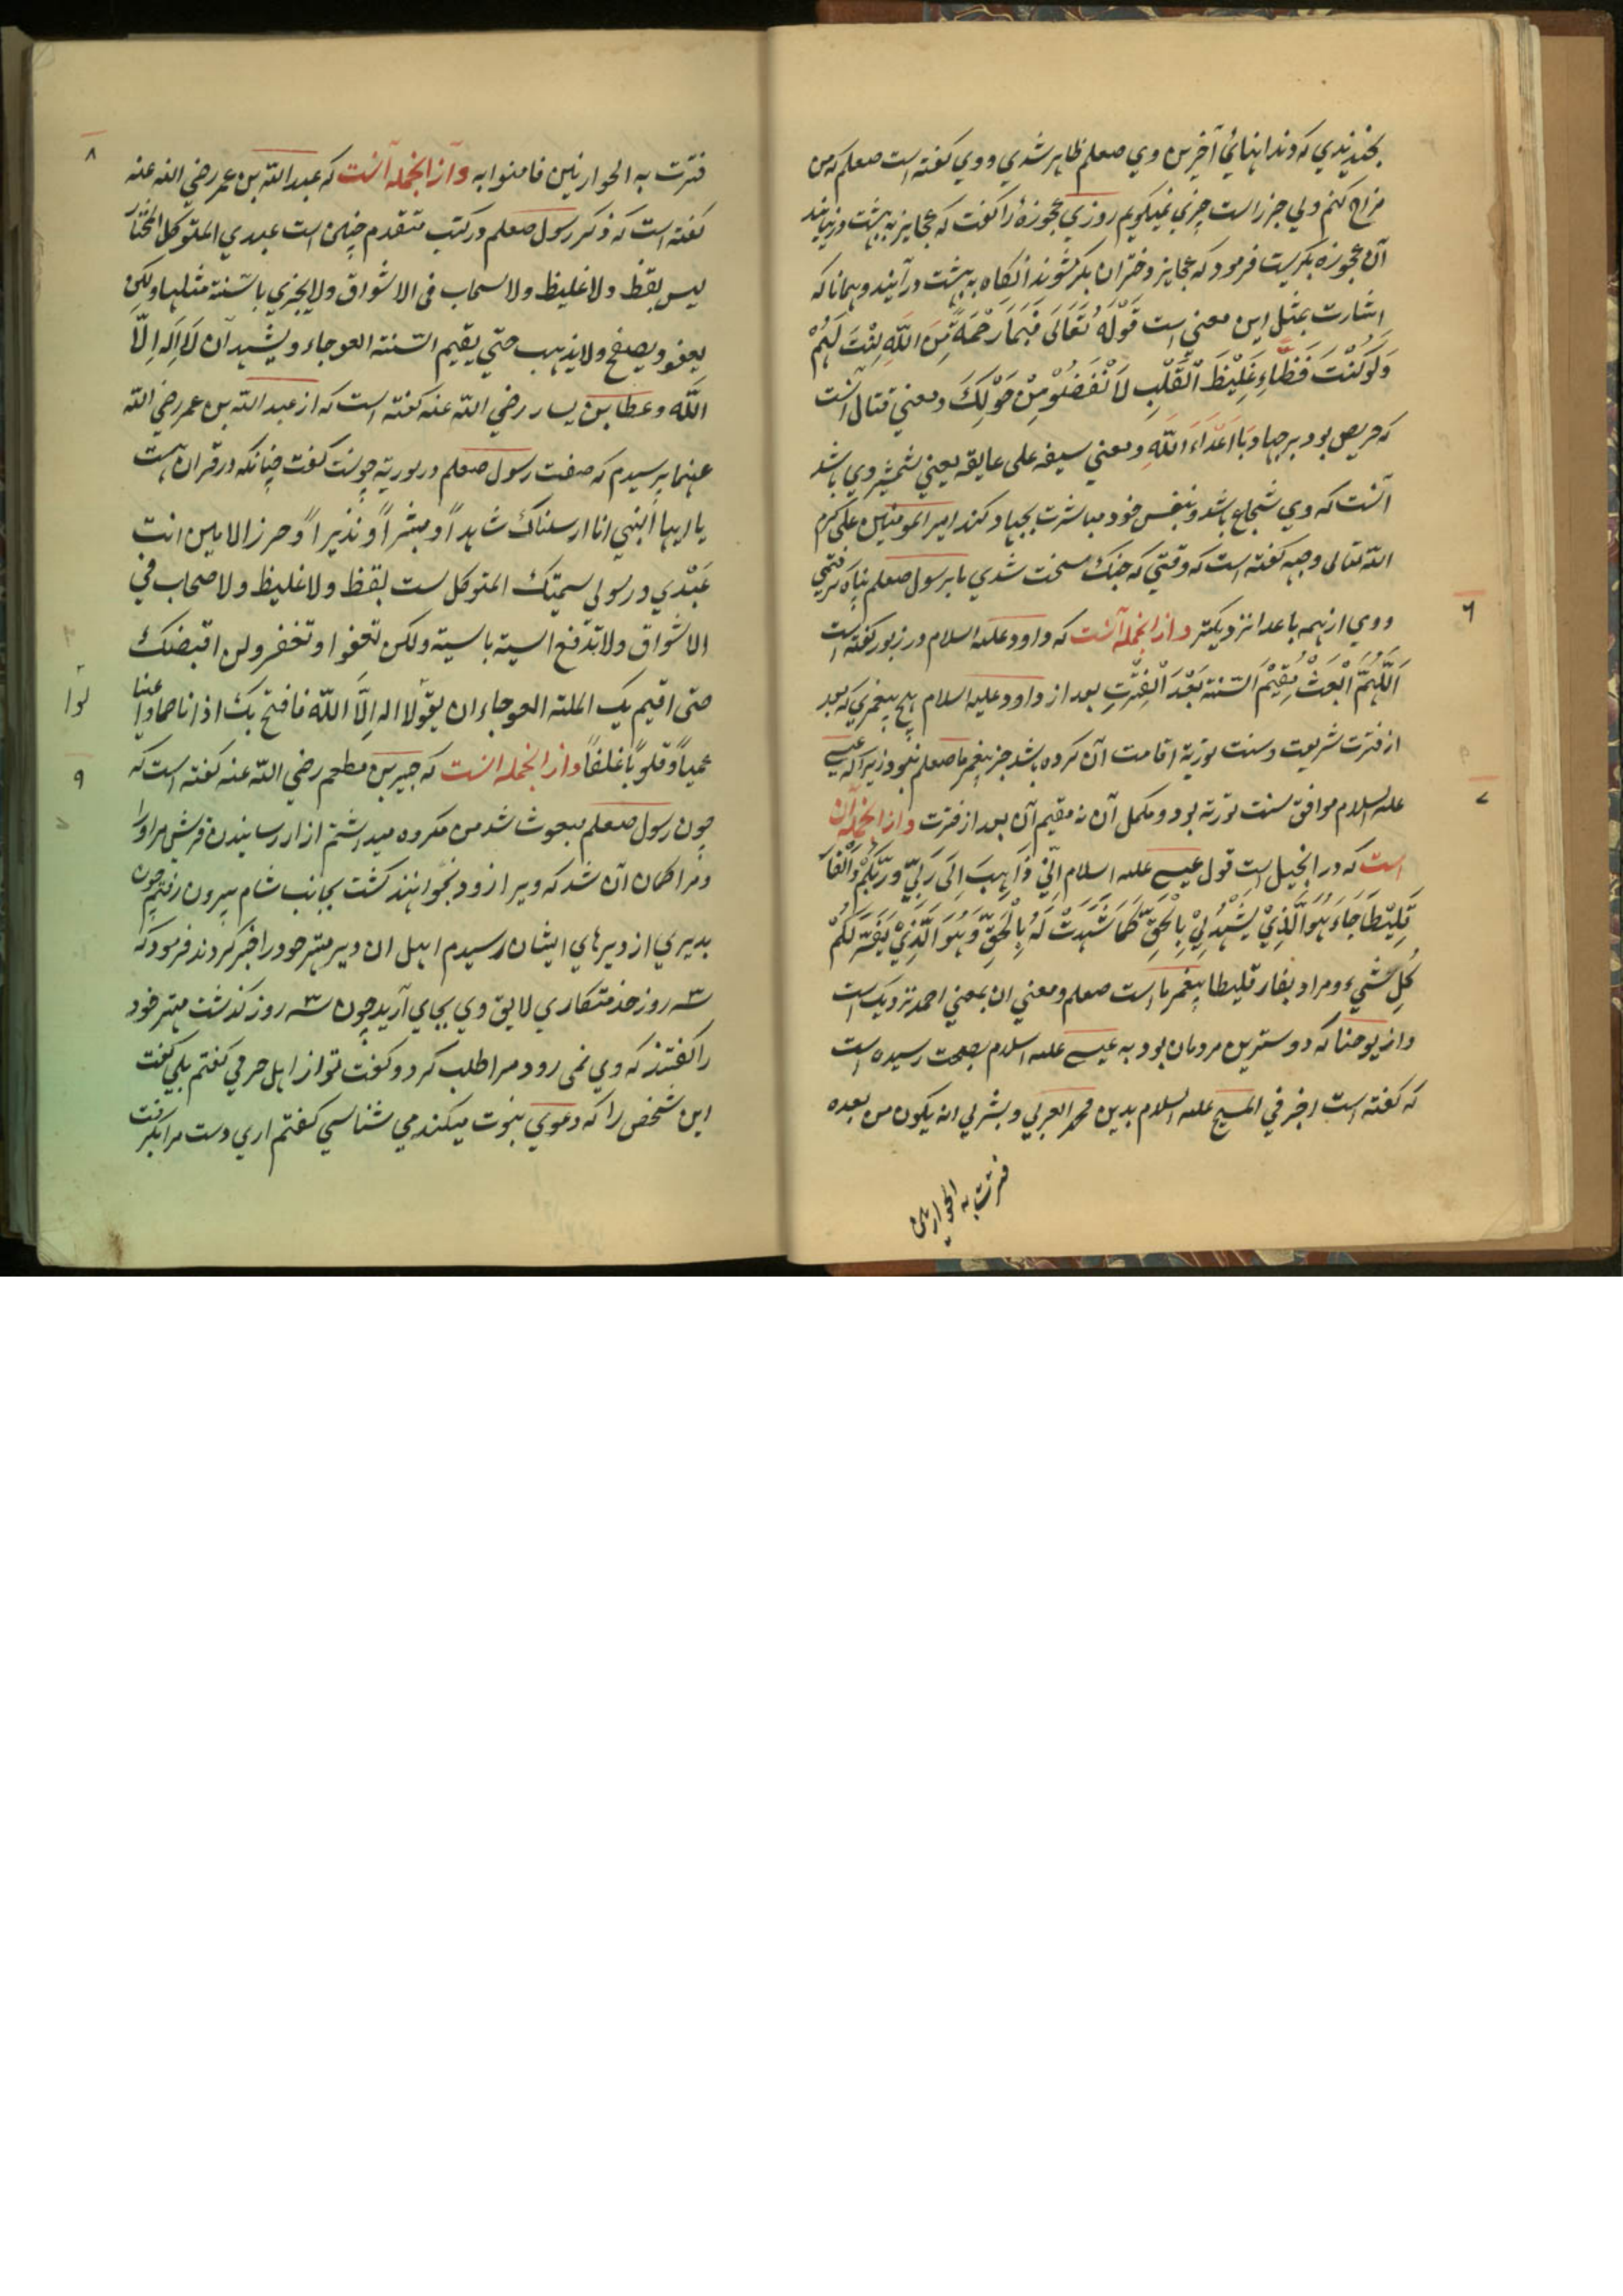 بخندیدی که دندانهائ آخرین وی صعلم ظاهر شدی و وی کفته است صعلم که من
مزاح کنم ولی جز راست چیزی نمیکویم روزی عجوزهٔ را کفت که عجایز به بهشت در نیایند
آن عجوزه بکریست فرمود که عجایز دختران بکر شوند انکاه به بهشت در آیند و همانا که
اشارت بمثل این معنی است قَوْلُهُ تَعَالَی فَبِمَا رَحْمَةٍ مِّنَ اللّٰهِ لِنْتَ لَهُمْ
وَلَوْ کُنْتَ فَظّاً غَلِیْظَ الْقَلْبِ لَانْفَضُّوْ مِنْ حَوْلِکَ و معنی قتال آنست
که حریص بود بر جهاد با اَعْدَاءَ اللّٰهِ و معنی سیفه علی عایقه یعنی شمشیر وی باشد
آنست که وی شجاع باشد و بنفس خود مباشرت بجهاد کند امیر المومنین علی کرم
الله تعالی وجهه کفته است که وقتی که جنک سخت شدی ما برسول صعلم پناه کرفتمی
و وی از همه باعدا نزدیکتر و از انجمله آنست که داود علیه السلام در زبور کفته است
اَللّٰهُمَّ ابْعَثْ مُقِیْمَ السّنة بَعْدَ الْفِتْرَتِ بعد از داود علیه السلام هیچ پیغمبری که بعد
از فترت شریعت و سنت توریة اقامت آن کرده باشد جز پیغمبر ما صعلم نبود زیرا که عیسی
علیه السلام موافق سنت توریة بود و مکمل آن نه مقیم آن بعد از فترت و از انجمله آن
است که در انجیل است قول عیسی علیه السلام اِنِّی ذَاهِبَ اِلَی رَبِّی وَ رَبُّکُمْ وَالْفَا
رَقَلِیْطَا جَاءَ هُوَ الَّذِیْ یَشْهَدُ لِیْ بِالْحَقِّ کَمَا شَهِدْتُ لَهُ بِالْحَقِّ وَ هُوَ الَّذِیْ یُفَسِّرُ لَکُمْ
کُلِ شَیْءٍ و مراد بفار قلیطا پیغمبر ما است صعلم و معنی ان بمعنی احمد نزدیک است
و از یوحنا که دوسترین مردمان بود به عیسی علیه السلام بصحت رسیده است
که کفته است اخبر فی المسیح علیه السلام بدین محمد العربی و بشر لی انه یکون من بعده
فترت به الحوارین
٦
٧
فترت به الحوارنین فامنوا به و از انجمله آنست که عبدالله بن عمر رضی الله عنه
کفته است که ذکر رسول صعلم در کتب متقدم چنین است عبدی المتوکل المختار
لیس بفظ و لا غلیظ و لا سحاب فی الاشواق و لا یجزی باسئنة مثلها و لکن
یعفو و یصفح و لا یذهب حتی یقیم السّنة العوجاء و یشهد ان لَا اِلَهَ اِلّا
اللّٰه و عطا بن یسار رضی الله عنه کفته است که از عبد الله بن عمر رضی الله
عنهما پرسیدم که صفت رسول صعلم در توریة چونست کفت چنانکه در قران هست
یا ایها النبی انا ارسلناک شاهداً و مبشراً و نذیراً و حرز الامیین انت
عَبْدی و رسولی سمیتک المتوکل ست بفظ و لا غلیظ و لا صحاب فی
الاشواق و لا تدفع السیة بالسیة و لکن تعفوا و تغفر و لن اقبضک
حتی اقیم بک الملة العوجاء ان یقولا اله اِلّا اللّٰه فافتح بک اذانا صما و اعینا
عمیاً و قلوباً غلفاً و از انجمله انست که جبیر بن مطعم رضی الله عنه کفته است که
چون رسول صعلم مبعوث شد من مکروه میداشتم ازار رسانیدن قریش مر او را
و مرا کمان آن شد که ویرا زود بخواهند کشت بجانب شام بیرون رفتم چون
بدیری از دیرهای ایشان رسیدم اهل ان دیر مهتر خود را خبر کردند فرمود که
سه روز خدمتکاری لایق وی بجای آرید چون سه روز کذشت مهتر خود
را کفتند که وی نمی رود مرا طلب کرد و کفت تو از اهل حرمی کفتم بلی کفت
این شخص را که دعوی نبوت میکند می شناسی کفتم اری دست مرا بکرفت
٨
٩